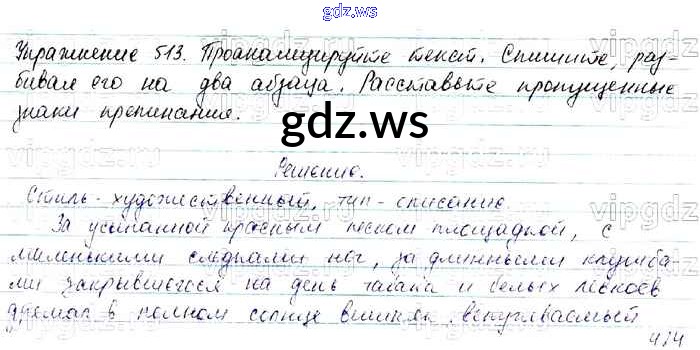 gdz.ws
Упражнение 513. Проанализируйте текст. Спишите, раз-
бивая его на два абзаца. Расставьте пропущенные
знаки препинания.
gdz.ws
Решение.
Стиль - художественный, тип - описание.
За усыпанной красным песком площадкой, с
миленькими следами ног, за длинными клумба-
ми закрывшегося на день табака и белых левкоев
дремал в полном солнце вишняк,